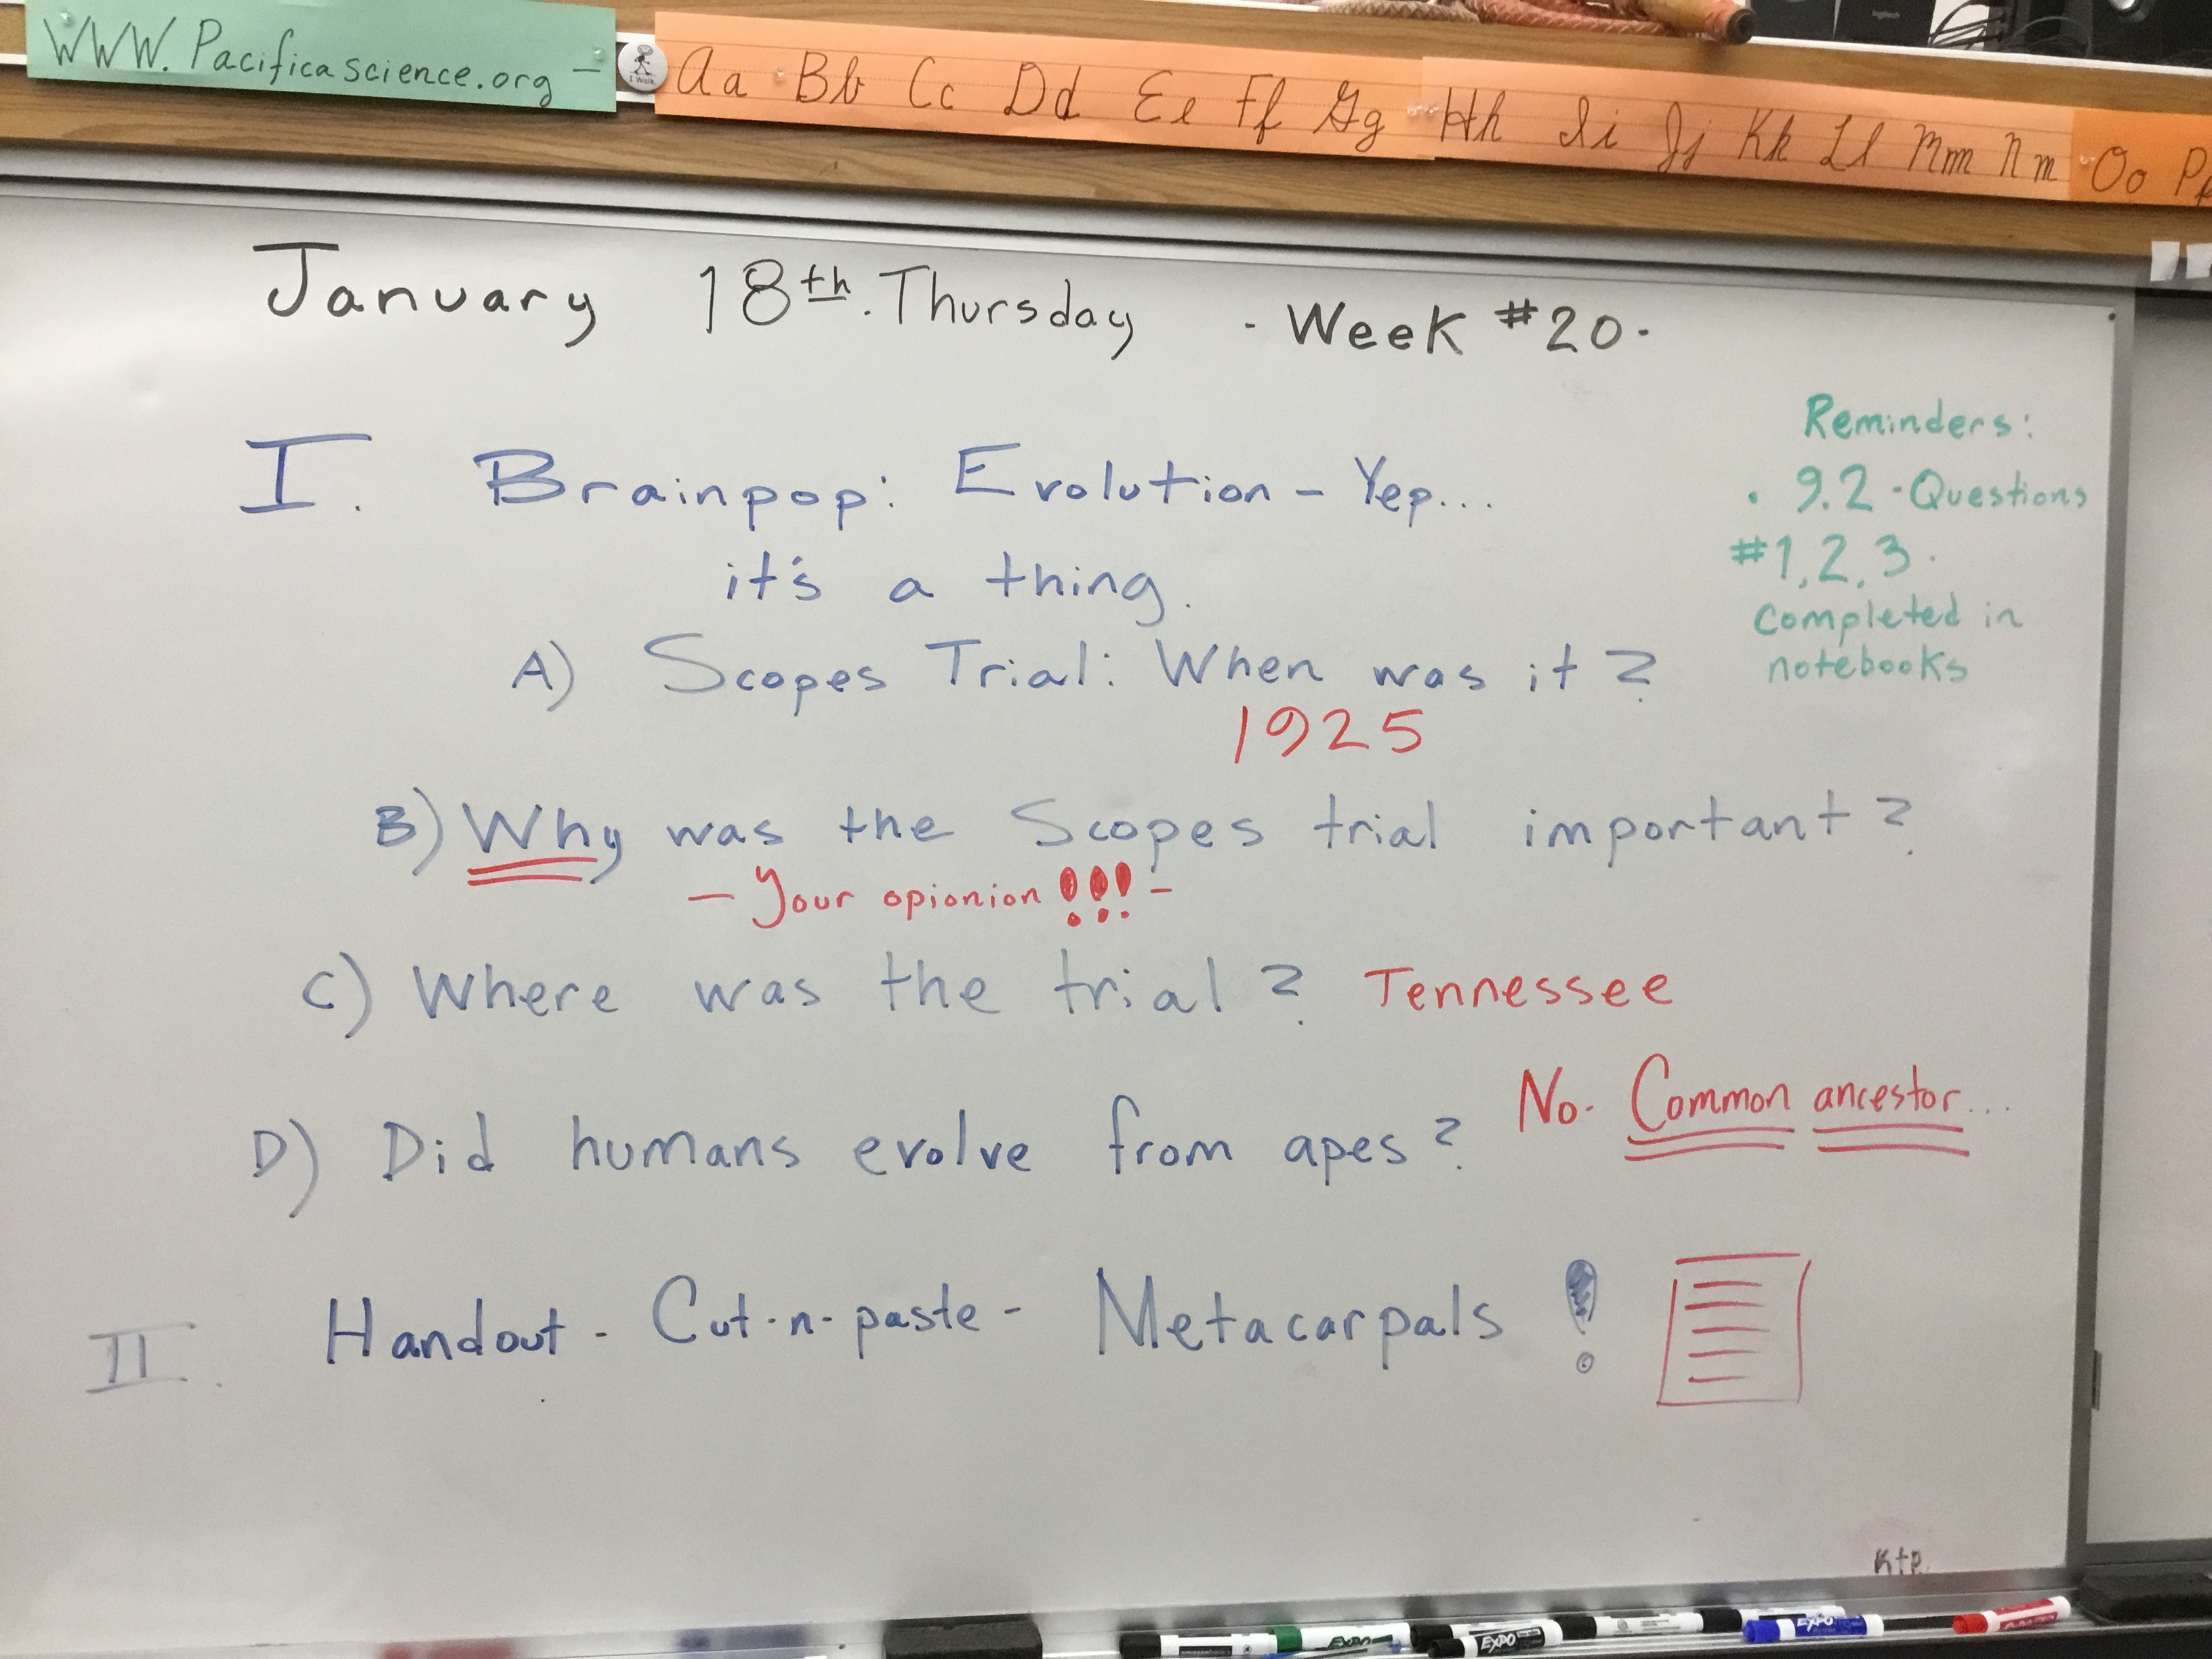 WWW.Pacificascience.org –
I Walk
Aa Bb Cc Dd Ee Ff Gg Hh Ii Jj Kk Ll Mm Nn Oo
logitech
January 18th. Thursday - Week #20.
I. Brainpop: Evolution – Yep...
it's a thing.
A) Scopes Trial: When was it?
1925
B) Why was the Scopes trial important?
– Your opionion !!! –
C) Where was the trial? Tennessee
D) Did humans evolve from apes? No. Common ancestor...
II. Handout - Cut-n-paste - Metacarpals!
Reminders:
• 9.2 - Questions
#1, 2, 3.
completed in
notebooks
EXPO
EXPO
EXPO